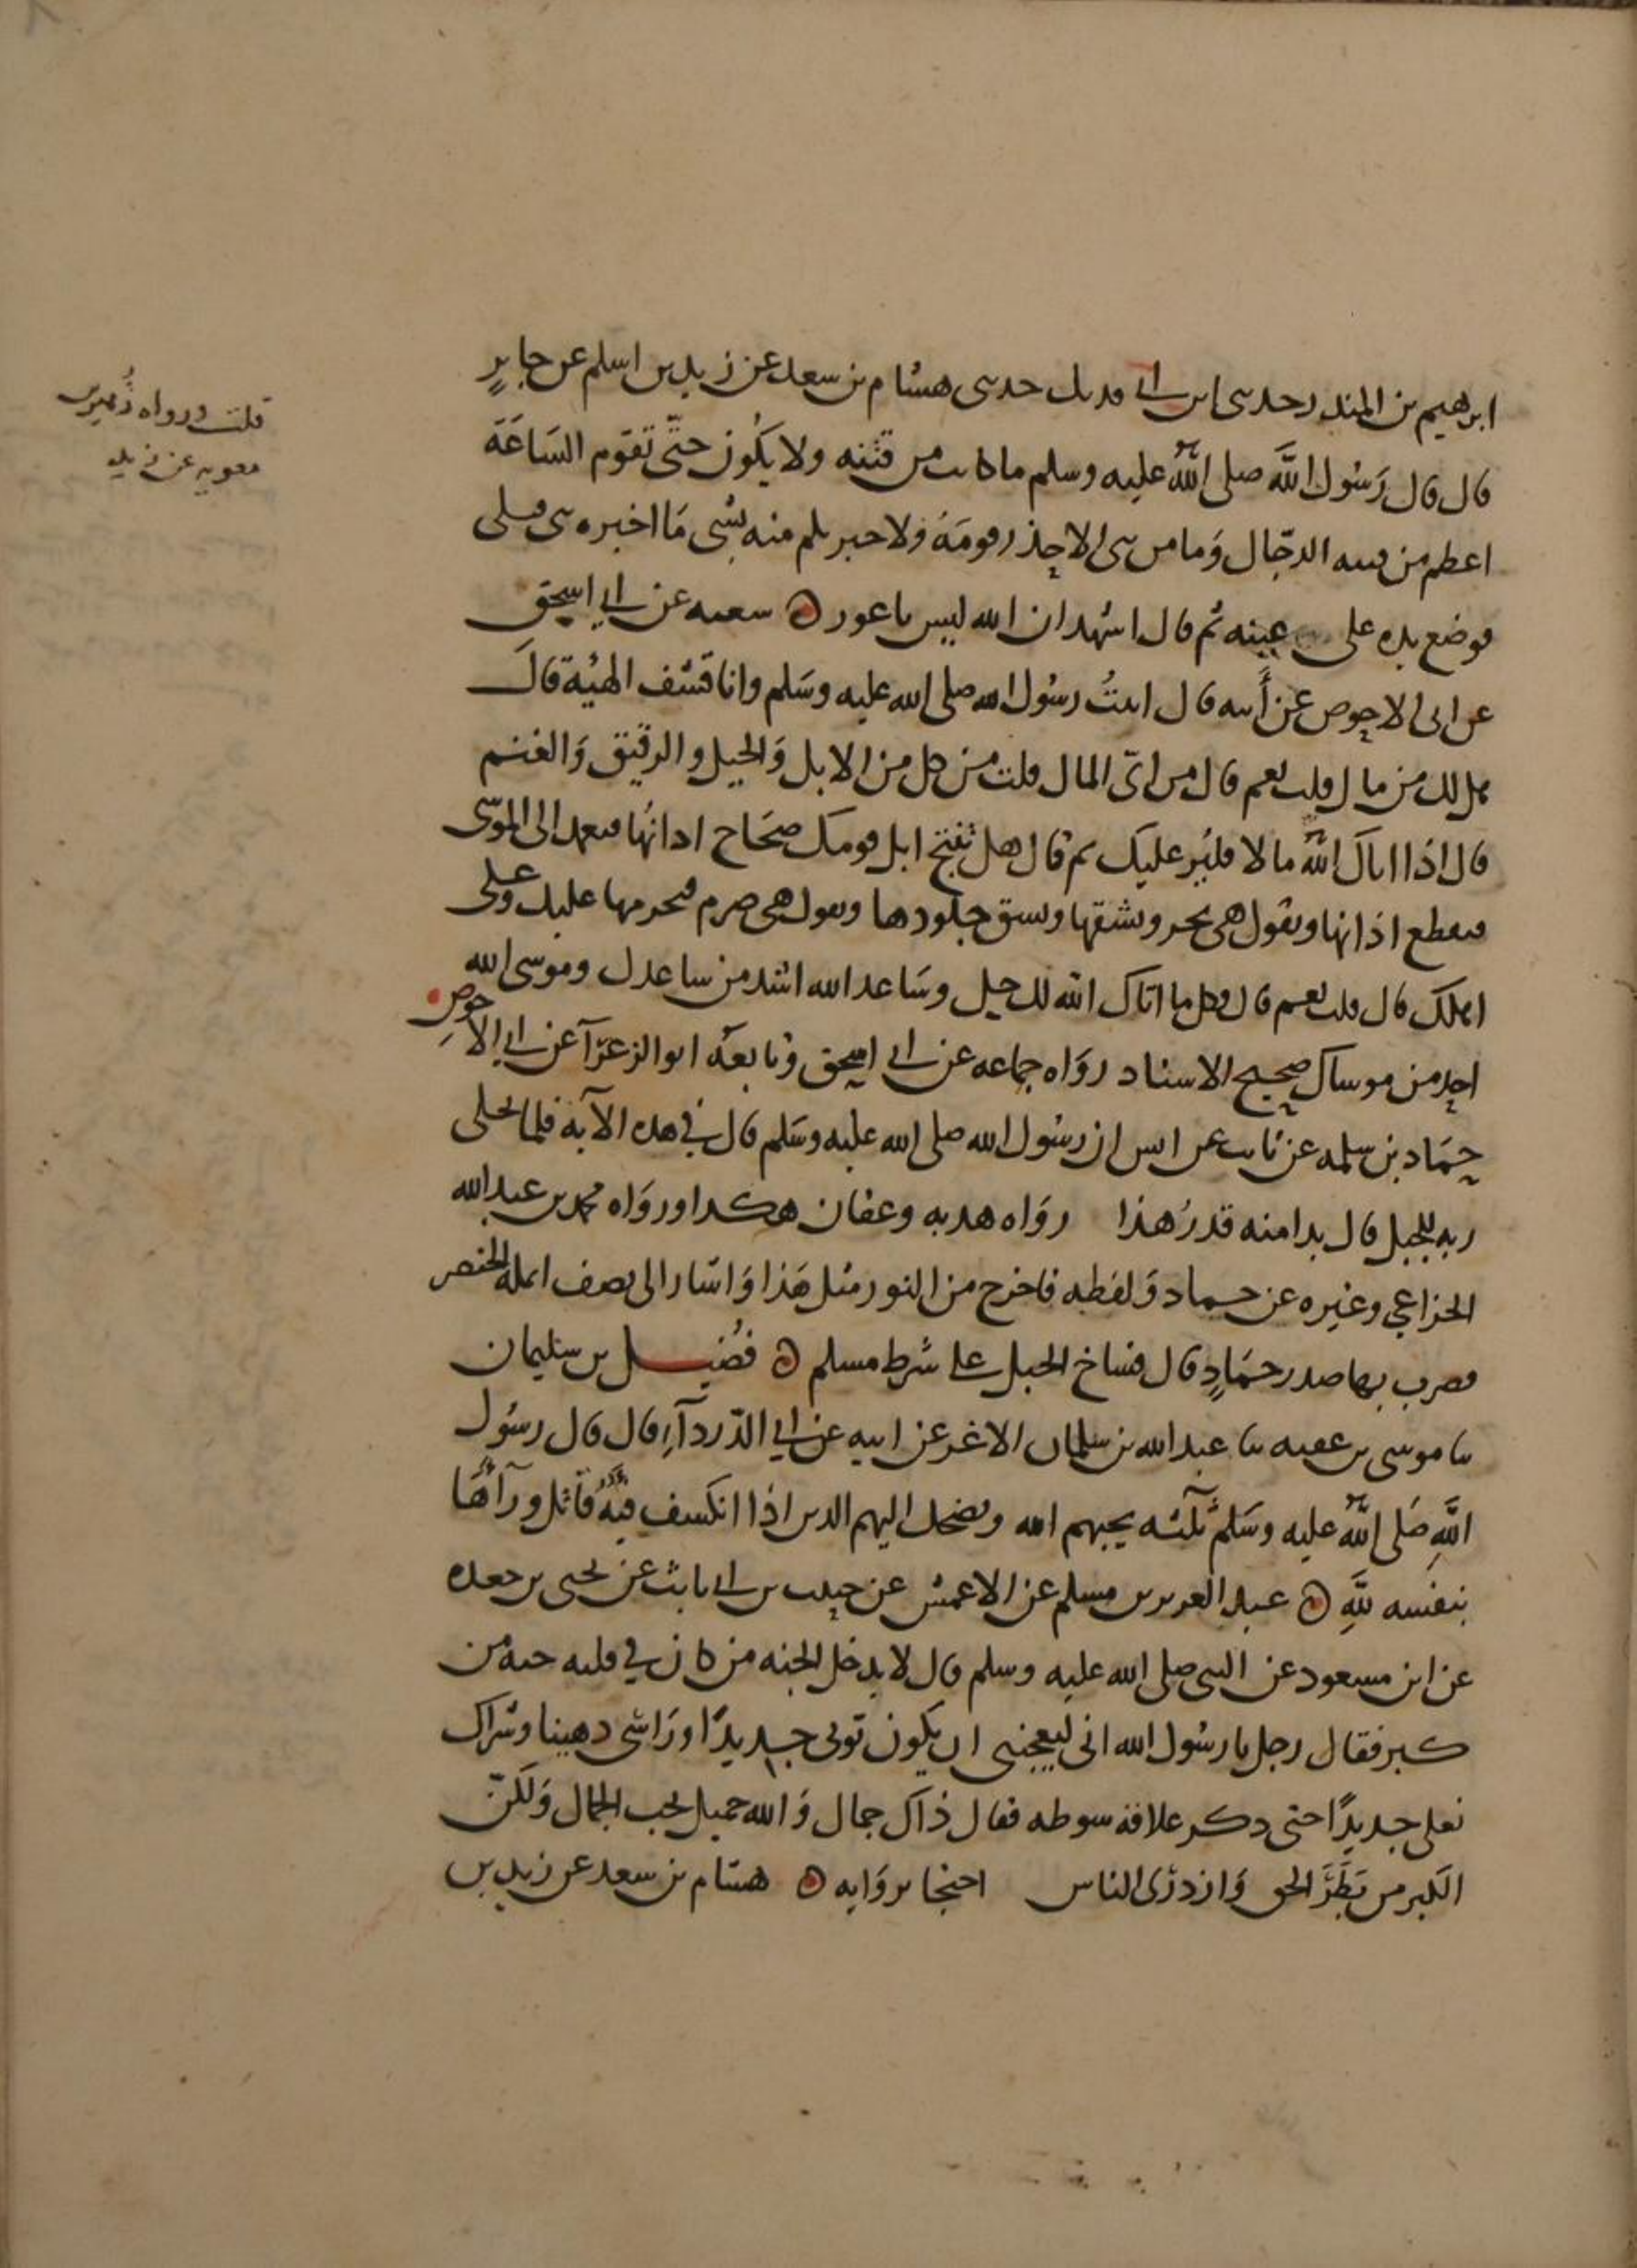 ابرهيم بن المنذر حدثني ابن ابي فديك حدثني هشام بن سعد عن زيد بن اسلم عن جابرٍ
قال قال رَسُول اللَّه صلى اللهُ عليه وسلم ما كانت من فتنه ولا يكُون حتّى تقوم السَاعَة
اعظم من فتنه الدجّال وَما من نبي الا حذر قومَهُ ولا خبرتكم منه بشي مَا اخبره نبي قبلي
فوضع يده على عينه ثم قال اشهد ان الله ليس باعور ه شعبه عن ابي اسحق
عن ابي الاحوص عن أَبيه قال اتيتُ رسُول الله صلى الله عليه وسَلم وانا قشف الهيْة قالَ
هل لك من مال قلت نعم قال من اىّ المال قلت من كل من الابل وَالخيل والرقيق وَالغنم
قال اذا اتاك اللهُ مالا فليُر عليك ثم قال هل تنتج ابل قومك صحَاح اذانُها فتعمد الى الموسَى
فتقطع اذانها وتقول هي بحر وتشقها وتشق جلُودها وتقول هي صرم فتحرمها عليك وعلى
اهلك قال قلت نعم قال فكل ما اتاك الله لك حل وسَاعد الله اشد من ساعدك وموسى الله
احد من موساك صحيح الاسناد روَاه جماعه عن ابي اسحق وتابعَهُ ابوالزعرَآ عن ابي الاحوصِ
حمَاد بن سلمه عن ثابت عن انس ان رسُول الله صلى الله عليه وسَلم قال في هذه الآية فلما تجلى
ربه للجبل قال بدا منه قدرُ هذا روَاه هدبه وعفان هكذا وروَاه محمد بن عبد الله
الخزاعي وغيره عن حماد وَلفظه فاخرج من النور مثل هَذا وَاشار الى نصف انمله الخنصر
فضرب بها صدر حمَادٍ قال فساخ الجبل على شرط مسلم ه فُضيل بن سليمان
ثنا موسى بن عقبه ثنا عبد الله بن سلمان الاغر عن ابيه عن ابي الدّردآءِ قال قال رسُول
اللَّهِ صَلى اللهُ عليه وسَلم ثلثه يحبهم الله ويضحك اليهم الذين اذا انكشف فيُةٌ قاتل ورآءَهَا
بنفسه للَّهِ ه عبد العزيز بن مسلم عن الاعمش عن حبيب بن ابي ثابت عن يحيى بن جعده
عن ابن مسعود عن النبي صلى الله عليه وسلم قال لا يدخل الجنه من كان في قلبه حبه من
كبر فقال رجل يا رسُول الله اني ليعجبني ان يكون ثوبي جديدًا ورَاسي دهينا وشراك
نعلي جديدًا حتى ذكر علاقة سوطه فقال ذاك جمال وَالله جميل يحب الجمال وَلكنّ
الكبر من بَطَرَ الحق وَازدرى الناس احتجا بروَاته ه هشام بن سعد عن زيد بن
قلت ورواه زُهير بن
معويه عن زيد